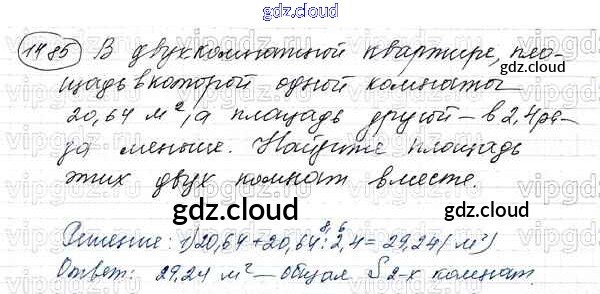 gdz.cloud
1485 В двухкомнатной квартире, пло-
gdz.cloud
щадь в которой одной комнаты
20,64 м², а площадь другой – в 2,4 ра-
за меньше. Найдите площадь
этих двух комнат вместе.
gdz.cloud
gdz.cloud
8,6
Решение: 1) 20,64 + 20,64 : 2,4 = 29,24 (м²)
Ответ: 29,24 м² – общая S 2-х комнат.
gdz.cloud